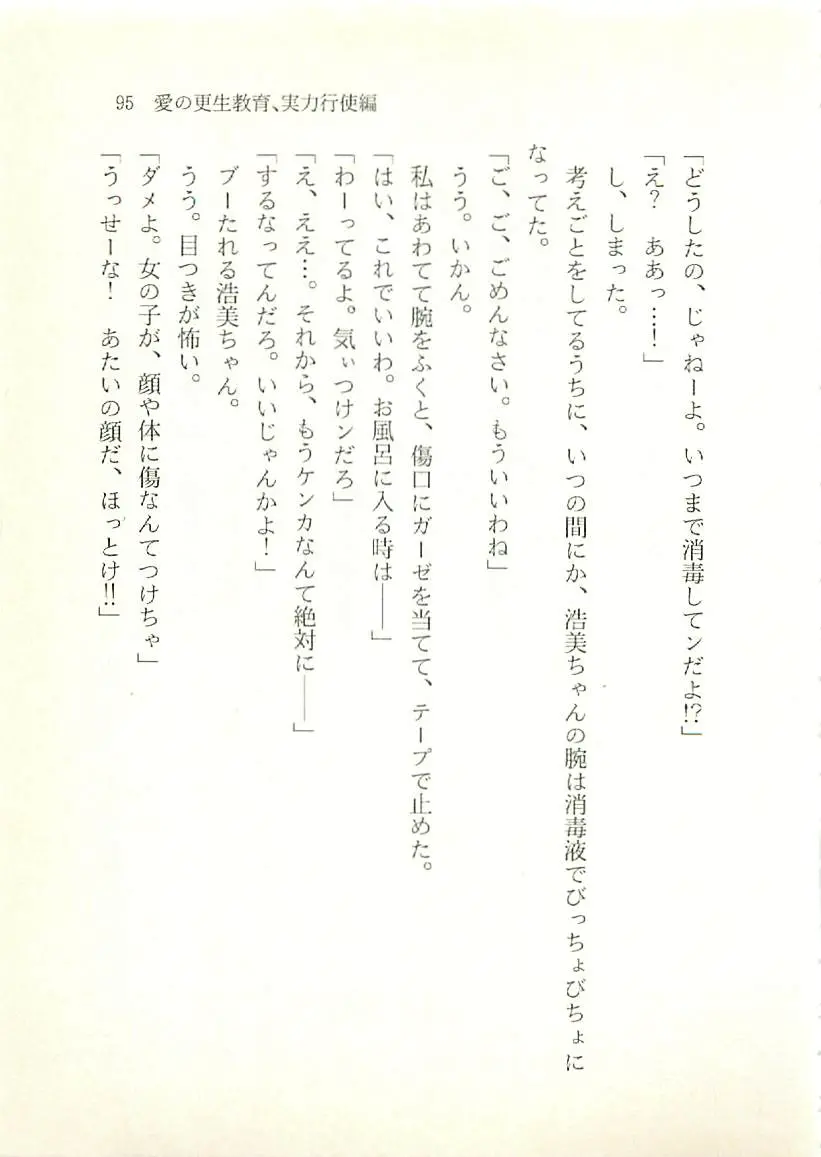 95　愛の更生教育、実力行使編
「どうしたの、じゃねーよ。いつまで消毒してンだよ!?」
「え?　ああっ…!」
し、しまった。
考えごとをしてるうちに、いつの間にか、浩美ちゃんの腕は消毒液でびっちょびちょに
なってた。
「ご、ご、ごめんなさい。もういいわね」
うう。いかん。
私はあわてて腕をふくと、傷口にガーゼを当てて、テープで止めた。
「はい、これでいいわ。お風呂に入る時は――」
「わーってるよ。気ぃつけンだろ」
「え、ええ…。それから、もうケンカなんて絶対に――」
「するなってんだろ。いいじゃんかよ!」
ブーたれる浩美ちゃん。
うう。目つきが怖い。
「ダメよ。女の子が、顔や体に傷なんてつけちゃ」
「うっせーな!　あたいの顔だ、ほっとけ!!」